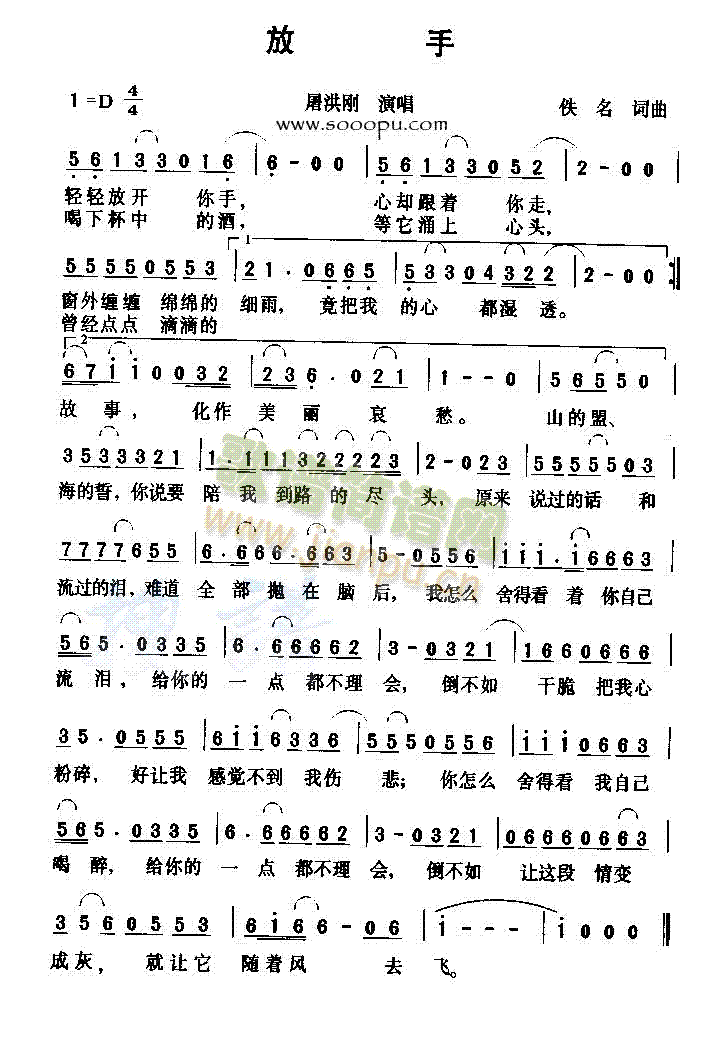 放 手
1=D 4/4 屠洪刚 演唱 佚 名 词曲
www.sooopu.com
5 6 1 3 3 0 1 6 | 6 - 0 0 | 5 6 1 3 3 0 5 2 | 2 - 0 0 |
轻轻放开 你手, 心却跟着 你走,
喝下杯中 的酒, 等它涌上 心头,
1
5 5 5 5 5 0 5 5 5 3 | 2 1 . 0 6 6 5 | 5 3 3 3 0 4 3 2 2 | 2 - 0 0 :||
窗外缠缠 绵绵的 细雨, 竟把我 的心 都湿 透。
曾经点点 滴滴的
2
6 7 i i 0 0 3 2 | 2 3 6 . 0 2 1 | 1 - - 0 | 5 6 5 5 0 |
故 事, 化作 美 丽 哀 愁。 山的盟、
3 5 3 3 3 2 1 | 1 . 1 1 1 3 2 2 2 2 3 | 2 - 0 2 3 | 5 5 5 5 5 0 3 |
海的誓,你说要 陪 我 到路 的 尽 头, 原来 说过的话 和
歌谱简谱网
www.jianpu.cn
7 7 7 7 6 5 5 | 6 . 6 6 6 . 6 6 3 | 5 - 0 5 5 6 | i i i . i 6 6 6 3 |
流过的泪,难道 全 部 抛 在 脑 后, 我怎么 舍得看 着 你自己
5 6 5 . 0 3 3 5 | 6 . 6 6 6 6 6 2 | 3 - 0 3 2 1 | 1 6 6 0 6 6 6 |
流 泪, 给你的 一 点 都不理 会, 倒不如 干脆 把我心
3 5 . 0 5 5 5 | 6 i i 6 3 3 6 | 5 5 5 0 5 5 6 | i i i 0 6 6 3 |
粉碎, 好让我 感觉不到 我伤 悲; 你怎么 舍得看 我自己
5 6 5 . 0 3 3 5 | 6 . 6 6 6 6 6 2 | 3 - 0 3 2 1 | 0 6 6 6 6 0 6 6 3 |
喝 醉, 给你的 一 点 都不理 会, 倒不如 让这段 情变
3 5 6 0 5 5 3 | 6 i 6 6 - 0 6 | i - - - | i 0 0 0 ||
成灰, 就让它 随着风 去 飞。